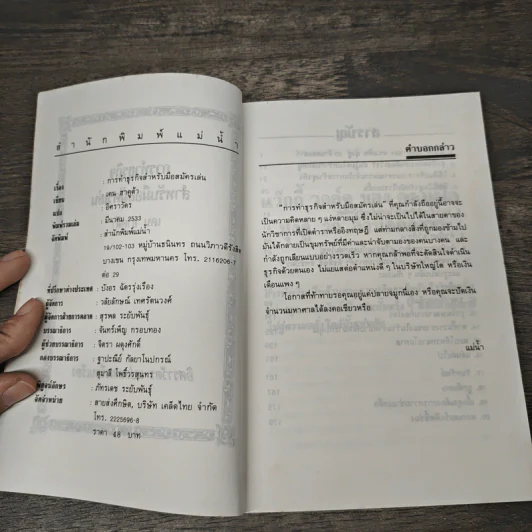 สำนักพิมพ์แม่น้ำ
เรื่อง : การทำธุรกิจสำหรับมือสมัครเล่น
เขียน : เคน ฮากูต้า
แปล : อิศราวัตร
พิมพ์ครั้งแรก : มีนาคม 2533
จัดพิมพ์ : สำนักพิมพ์แม่น้ำ
19/102-103 หมู่บ้านธนินทร ถนนวิภาวดีรังสิต
บางเขน กรุงเทพมหานคร โทร. 2116206-7
ต่อ 29
ที่ปรึกษาต่างประเทศ : บังอร ฉัตรรุ่งเรือง
ผู้จัดการ : วลัยลักษณ์ เทศรัตนวงศ์
ผู้จัดการฝ่ายการตลาด : สุรพล ระยับพันธุ์
บรรณาธิการ : จันทร์เพ็ญ กรอบทอง
ผู้ช่วยบรรณาธิการ : จิตรา ผดุงศักดิ์
กองบรรณาธิการ : ฐาปะณีย์ กัลยาโนปกรณ์
สุมาลี โพธิ์วรสุนทร
พิสูจน์อักษร : ภัทรเดช ระยับพันธุ์
จัดจำหน่าย : สายส่งศึกษิต, บริษัท เคล็ดไทย จำกัด
โทร. 2225696-8
ราคา 48 บาท
คำบอกกล่าว
"การทำธุรกิจสำหรับมือสมัครเล่น" ที่คุณกำลังถืออยู่นี้อาจจะ
เป็นความคิดหลาย ๆ แง่หลายมุม ซึ่งไม่น่าจะเป็นไปได้ในสายตาของ
นักวิชาการที่เปิดตำราหรืออิงทฤษฎี แต่ท่ามกลางสิ่งที่ถูกมองข้ามไป
มันได้กลายเป็นขุมทรัพย์ที่มีค่าและน่าจับตามองของคนบางคน และ
กำลังถูกเลียนแบบอย่างรวดเร็ว หากคุณกล้าพอที่จะตัดสินใจดำเนิน
ธุรกิจด้วยตนเอง ไม่แยแสต่อตำแหน่งดี ๆ ในบริษัทใหญ่โต หรือเงิน
เดือนแพง ๆ
โอกาสที่ท้าทายรอคุณอยู่แค่ปลายจมูกนี่เอง หรือคุณจะปัดเงิน
จำนวนมหาศาลให้ลงคอเขียวหรือ
แม่น้ำ